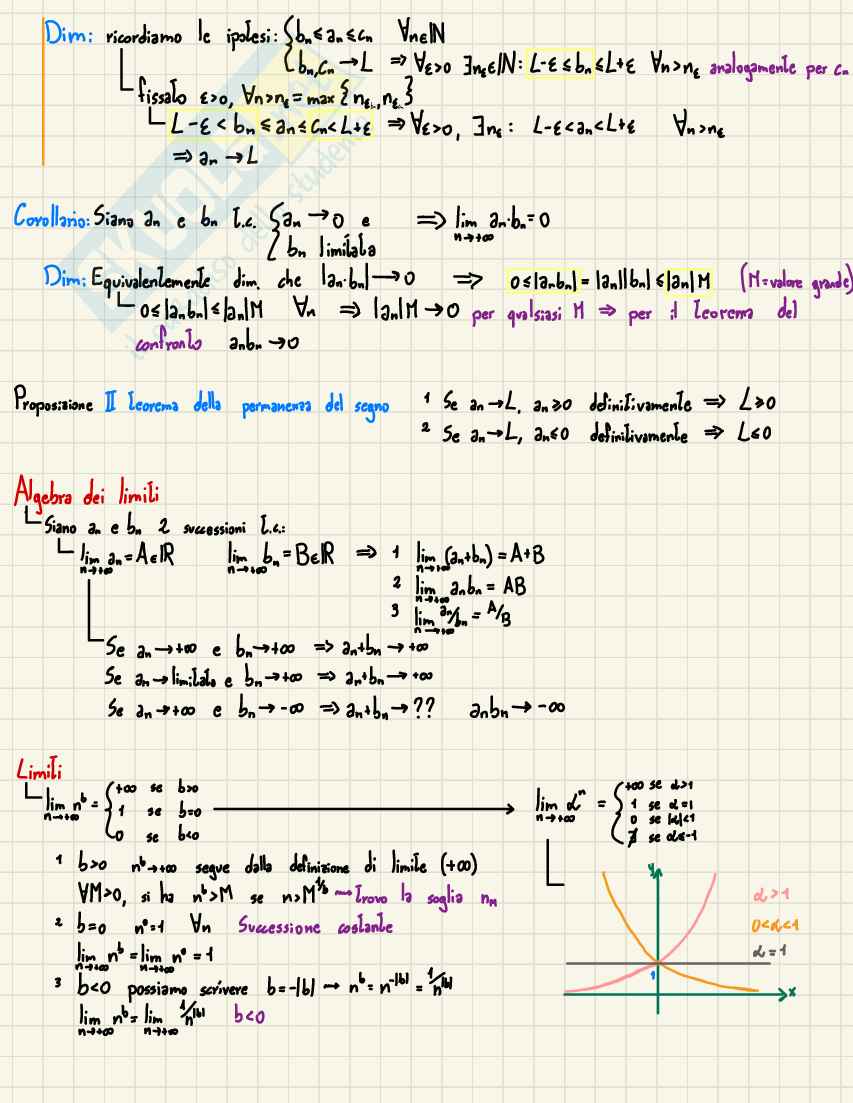 Dim: ricordiamo le ipotesi: { bₙ ≤ aₙ ≤ cₙ ∀n∈ℕ
bₙ, cₙ → L ⇒ ∀ε>0 ∃nε∈ℕ: L-ε ≤ bₙ ≤ L+ε ∀n>nε analogamente per cₙ
fissato ε>0, ∀n>nε = max{nε₁, nε₂}
L-ε < bₙ ≤ aₙ ≤ cₙ < L+ε ⇒ ∀ε>0, ∃nε: L-ε < aₙ < L+ε ∀n>nε
⇒ aₙ → L
Corollario: Siano aₙ e bₙ t.c. { aₙ → 0 e ⇒ lim n→+∞ aₙ·bₙ = 0
bₙ limitata
Dim: Equivalentemente dim. che |aₙ·bₙ| → 0 ⇒ 0 ≤ |aₙbₙ| = |aₙ||bₙ| ≤ |aₙ|M (M=valore grande)
0 ≤ |aₙbₙ| ≤ |aₙ|M ∀n ⇒ |aₙ|M → 0 per qualsiasi M ⇒ per il teorema del
confronto aₙbₙ → 0
Proposizione II teorema della permanenza del segno 1 Se aₙ → L, aₙ ≥ 0 definitivamente ⇒ L ≥ 0
2 Se aₙ → L, aₙ ≤ 0 definitivamente ⇒ L ≤ 0
Algebra dei limiti
Siano aₙ e bₙ 2 successioni t.c.:
lim n→+∞ aₙ = A∈ℝ lim n→+∞ bₙ = B∈ℝ ⇒ 1 lim n→+∞ (aₙ+bₙ) = A+B
2 lim n→+∞ aₙbₙ = AB
3 lim n→+∞ aₙ/bₙ = A/B
Se aₙ → +∞ e bₙ → +∞ ⇒ aₙ+bₙ → +∞
Se aₙ → limitato e bₙ → +∞ ⇒ aₙ+bₙ → +∞
Se aₙ → +∞ e bₙ → -∞ ⇒ aₙ+bₙ → ?? aₙbₙ → -∞
Limiti
lim n→+∞ nᵇ = { +∞ se b>0
1 se b=0
0 se b<0
lim n→+∞ αⁿ = { +∞ se α>1
1 se α=1
0 se |α|<1
∄ se α≤-1
1 b>0 nᵇ → +∞ segue dalla definizione di limite (+∞)
∀M>0, si ha nᵇ>M se n>M^(1/b) → trovo la soglia n_M
2 b=0 n⁰=1 ∀n Successione costante
lim n→+∞ nᵇ = lim n→+∞ n⁰ = 1
3 b<0 possiamo scrivere b=-|b| → nᵇ = n^(-|b|) = 1/n^|b|
lim n→+∞ nᵇ = lim n→+∞ 1/n^|b| b<0
y
α>1
0<α<1
α=1
1
x